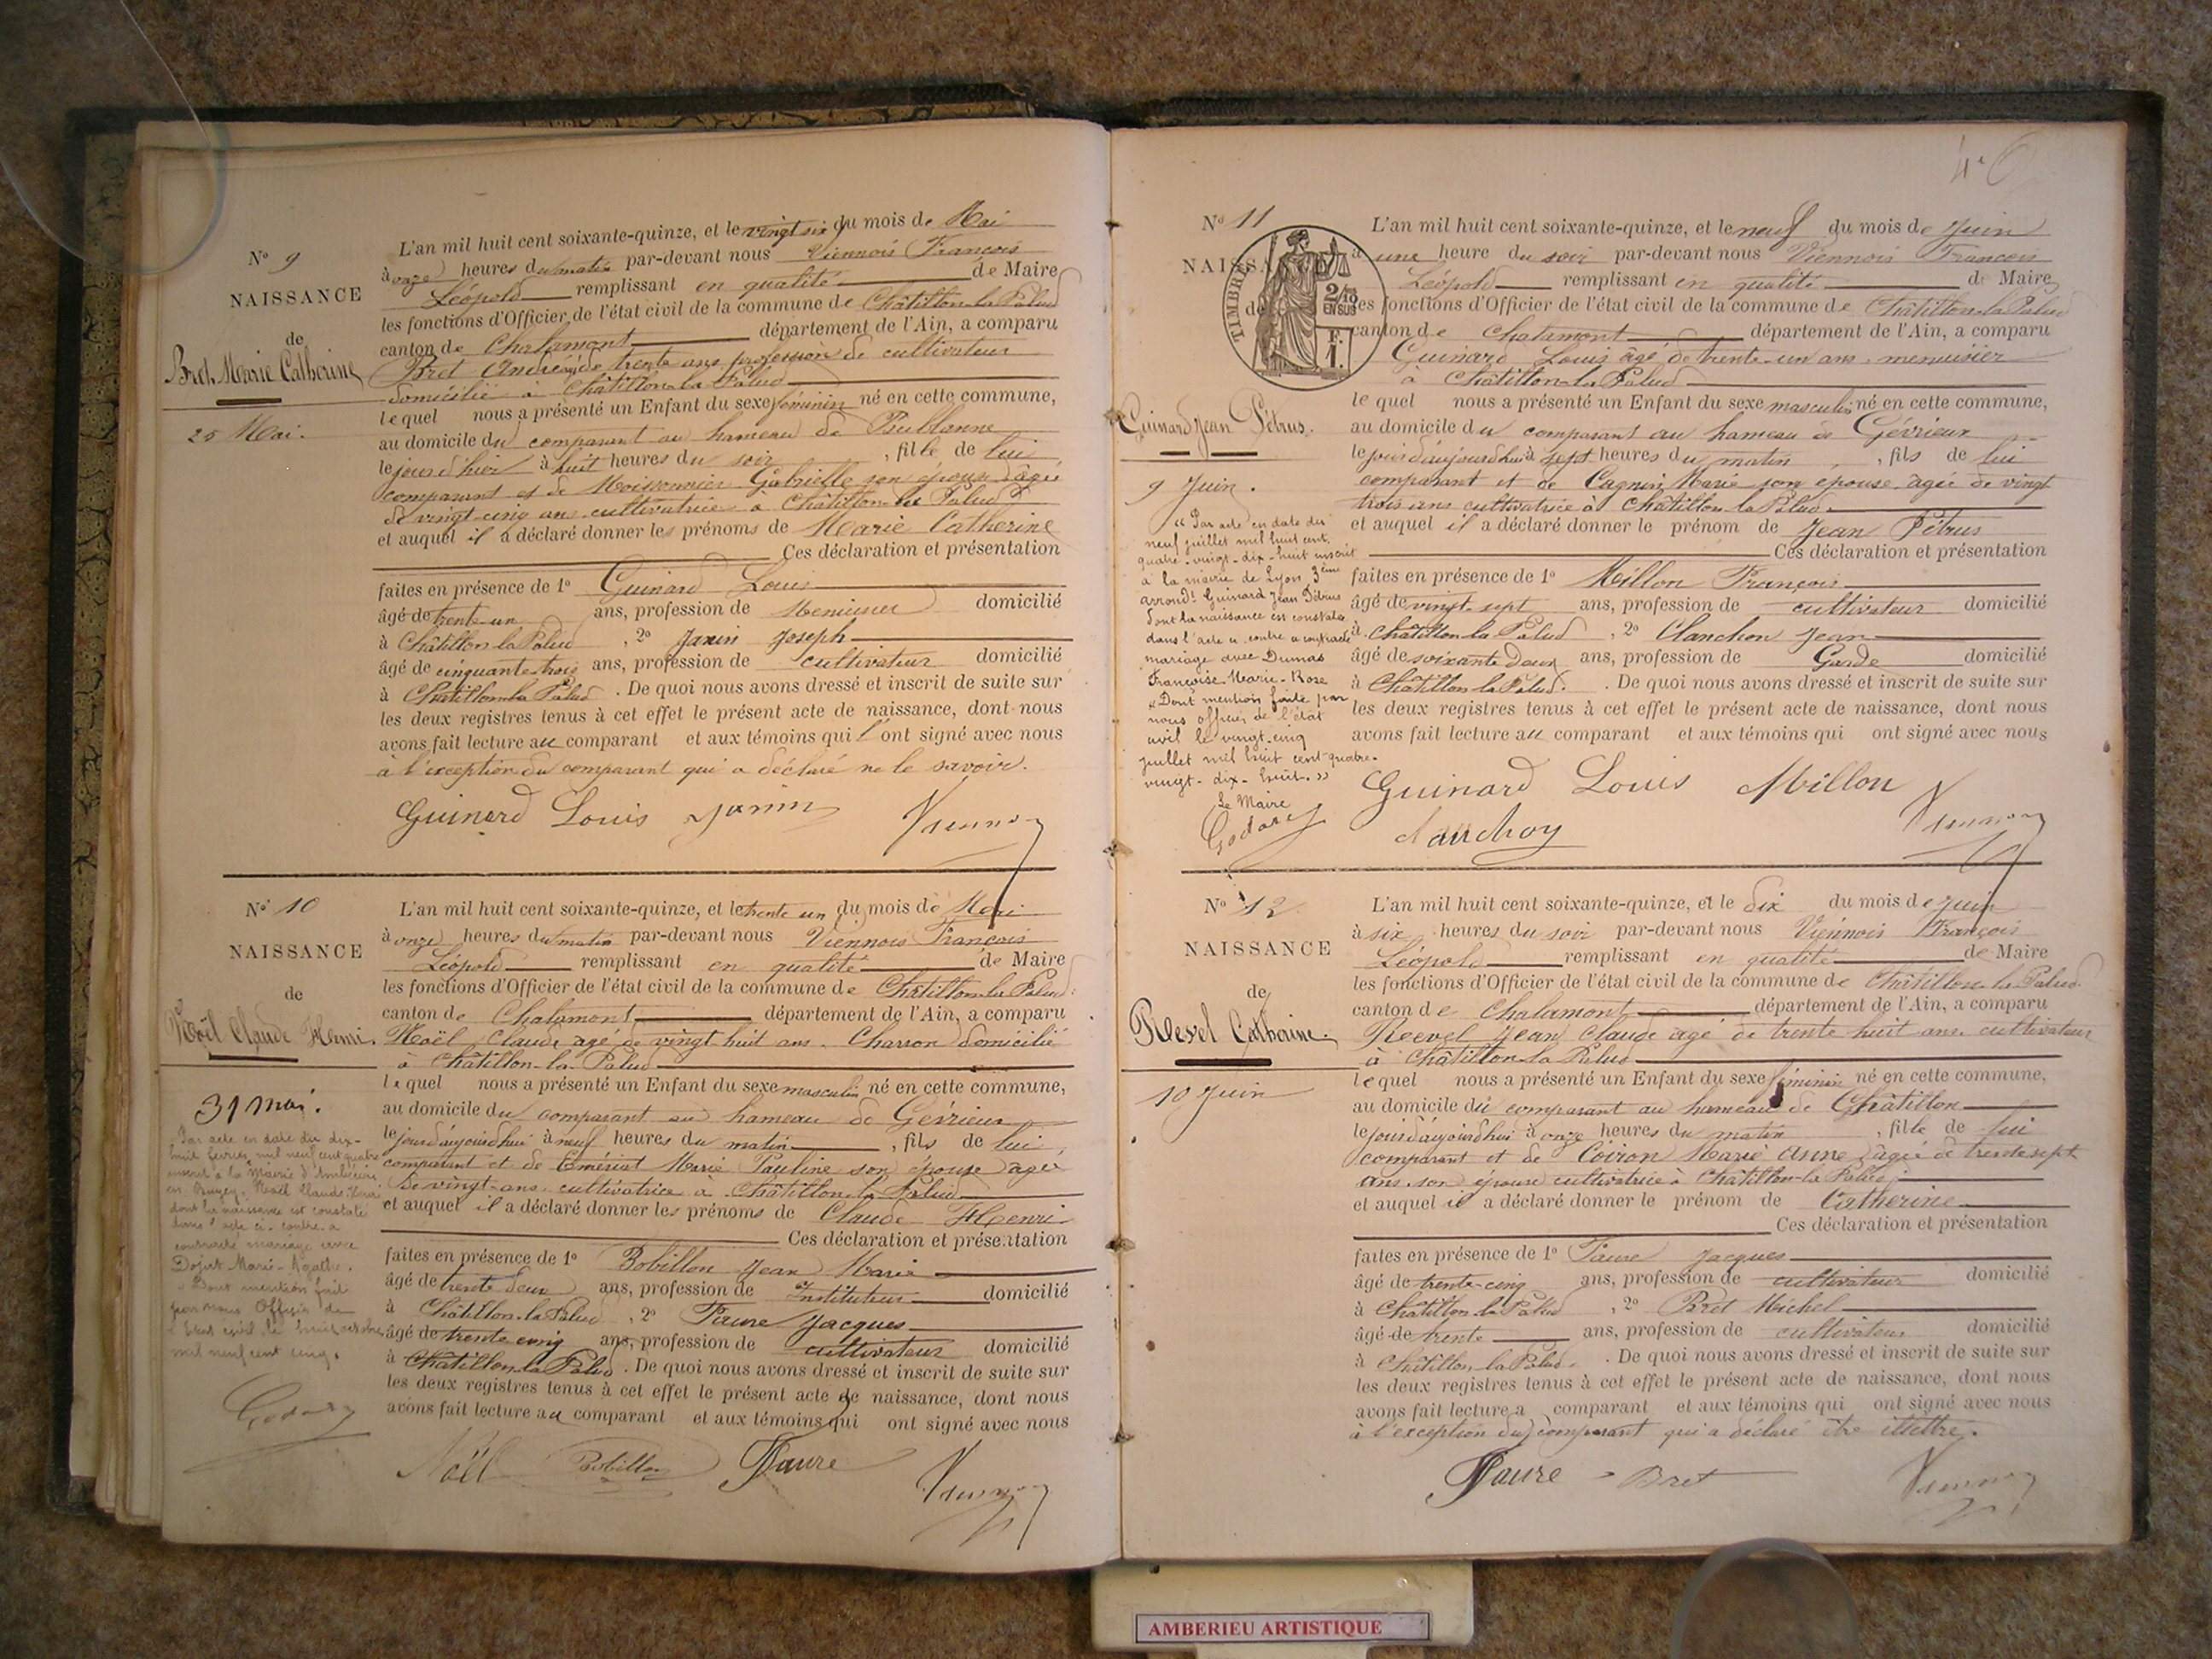 N° 9
NAISSANCE
de
Bret Marie Catherine
25 Mai.
L'an mil huit cent soixante-quinze, et le vingt six du mois de Mai
à onze heures du matin par-devant nous Viennois François
Léopold remplissant en qualité de Maire
les fonctions d'Officier de l'état civil de la commune de Châtillon-la-Palud
canton de Chalamont département de l'Ain, a comparu
Bret André âgé de trente ans profession de cultivateur
domicilié à Châtillon-la-Palud
le quel nous a présenté un Enfant du sexe féminin né en cette commune,
au domicile du comparant au hameau de Publanne
le jour d'hier à huit heures du soir, fille de lui
comparant et de Moissonnier Gabrielle son épouse âgée
de vingt-cinq ans cultivatrice à Châtillon-la-Palud
et auquel il a déclaré donner les prénoms de Marie Catherine
Ces déclaration et présentation
faites en présence de 1° Guinard Louis
âgé de trente-un ans, profession de Menuisier domicilié
à Châtillon-la-Palud, 2° Janin Joseph
âgé de cinquante-trois ans, profession de cultivateur domicilié
à Châtillon-la-Palud. De quoi nous avons dressé et inscrit de suite sur
les deux registres tenus à cet effet le présent acte de naissance, dont nous
avons fait lecture au comparant et aux témoins qui l'ont signé avec nous
à l'exception du comparant qui a déclaré ne le savoir.
Guinard Louis Janin Viennois
N° 10
NAISSANCE
de
Noël Claude Henri.
31 mai.
Par acte en date du dix-
huit février mil neuf cent quatre
inscrit à la Mairie d'Ambérieu
en Bugey, Noël Claude Henri
dont la naissance est constatée
dans l'acte ci-contre a
contracté mariage avec
Marie-Agathe.
Dont mention faite
par nous Officier de
l'Etat civil le huit octobre
mil neuf cent cinq.
Godard
L'an mil huit cent soixante-quinze, et le trente un du mois de Mai
à onze heures du matin par-devant nous Viennois François
Léopold remplissant en qualité de Maire
les fonctions d'Officier de l'état civil de la commune de Châtillon-la-Palud.
canton de Chalamont département de l'Ain, a comparu
Noël Claude âgé de vingt-huit ans. Charron domicilié
à Châtillon-la-Palud
le quel nous a présenté un Enfant du sexe masculin né en cette commune,
au domicile du comparant au hameau de Gévrieux
le jour d'aujourd'hui à neuf heures du matin, fils de lui
comparant et de Emériat Marie Pauline son épouse âgée
de vingt-ans cultivatrice à Châtillon-la-Palud
et auquel il a déclaré donner les prénoms de Claude Henri
Ces déclaration et présentation
faites en présence de 1° Bobillon Jean Marie
âgé de trente deux ans, profession de Instituteur domicilié
à Châtillon-la-Palud, 2° Faure Jacques
âgé de trente cinq ans, profession de cultivateur domicilié
à Châtillon-la-Palud. De quoi nous avons dressé et inscrit de suite sur
les deux registres tenus à cet effet le présent acte de naissance, dont nous
avons fait lecture au comparant et aux témoins qui ont signé avec nous
Noël Bobillon Faure Viennois
N° 11
NAISSA
de
TIMBRE
2/10
EN SUS
F.
1.
Guinard Jean Pétrus.
9 Juin.
« Par acte en date du
neuf juillet mil huit cent
quatre-vingt-dix-huit inscrit
à la mairie de Lyon 3ème
arrondt Guinard Jean Pétrus
dont la naissance est constatée
dans l'acte ci contre a contracté
mariage avec Dumas
Françoise-Marie-Rose
«Dont mention faite par
nous officier de l'état
civil le vingt-cinq
juillet mil huit cent quatre-
vingt-dix-huit.»
Le Maire
Godard
L'an mil huit cent soixante-quinze, et le neuf du mois de Juin
à une heure du soir par-devant nous Viennois François
Léopold remplissant en qualité de Maire
les fonctions d'Officier de l'état civil de la commune de Châtillon-la-Palud
canton de Chalamont département de l'Ain, a comparu
Guinard Louis âgé de trente-un ans. menuisier
à Châtillon-la-Palud
le quel nous a présenté un Enfant du sexe masculin né en cette commune,
au domicile du comparant au hameau de Gévrieux
le jour d'aujourd'hui à sept heures du matin, fils de lui
comparant et de Cagnin Marie son épouse âgée de vingt
trois ans cultivatrice à Châtillon-la-Palud.
et auquel il a déclaré donner le prénom de Jean Pétrus
Ces déclaration et présentation
faites en présence de 1° Millon François
âgé de vingt-sept ans, profession de cultivateur domicilié
à Châtillon-la-Palud, 2° Clanchon Jean
âgé de soixante deux ans, profession de Garde domicilié
à Châtillon-la-Palud. De quoi nous avons dressé et inscrit de suite sur
les deux registres tenus à cet effet le présent acte de naissance, dont nous
avons fait lecture au comparant et aux témoins qui ont signé avec nous
Guinard Louis Millon
Viennois
N° 12
NAISSANCE
de
Revel Catherine.
10 Juin
L'an mil huit cent soixante-quinze, et le dix du mois de Juin
à six heures du soir par-devant nous Viennois François
Léopold remplissant en qualité de Maire
les fonctions d'Officier de l'état civil de la commune de Châtillon-la-Palud.
canton de Chalamont département de l'Ain, a comparu
Revel Jean Claude âgé de trente huit ans. cultivateur
à Châtillon-la-Palud
le quel nous a présenté un Enfant du sexe féminin né en cette commune,
au domicile du comparant au hameau de Châtillon
le jour d'aujourd'hui à onze heures du matin, fille de lui
comparant et de Coiron Marie Anne âgée de trente sept
ans son épouse cultivatrice à Châtillon-la-Palud
et auquel il a déclaré donner le prénom de Catherine
Ces déclaration et présentation
faites en présence de 1° Faure Jacques
âgé de trente-cinq ans, profession de cultivateur domicilié
à Châtillon-la-Palud, 2° Bret Michel
âgé de trente ans, profession de cultivateur domicilié
à Châtillon-la-Palud. De quoi nous avons dressé et inscrit de suite sur
les deux registres tenus à cet effet le présent acte de naissance, dont nous
avons fait lecture a comparant et aux témoins qui ont signé avec nous
à l'exception du comparant qui a déclaré être illettré.
Faure Bret Viennois
AMBERIEU ARTISTIQUE